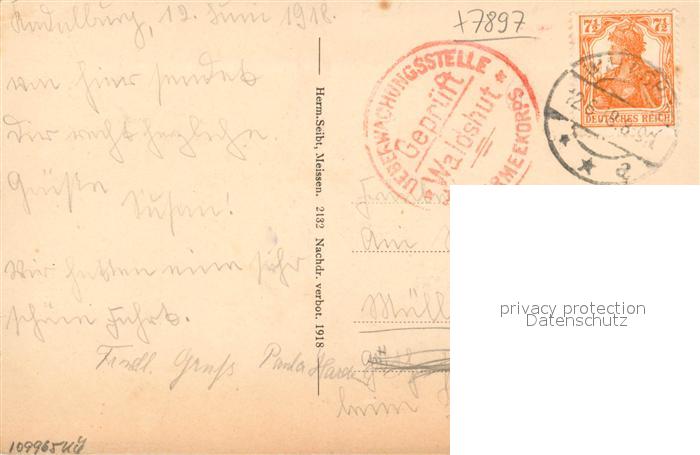 12. Juni 1918.
von hier sendet
Dir recht herzliche
Grüße
Susan!
Wir hatten eine sehr
schöne Fahrt.
Frdl. Gruß Paula
109965
Herm. Seibt, Meissen. 2132 Nachdr. verbot. 1918
+7897
UEBERWACHUNGSSTELLE
Geprüft
Waldshut
ARMEEKORPS
7½ 7½
DEUTSCHES REICH
Am
Müll
beim
privacy protection
Datenschutz